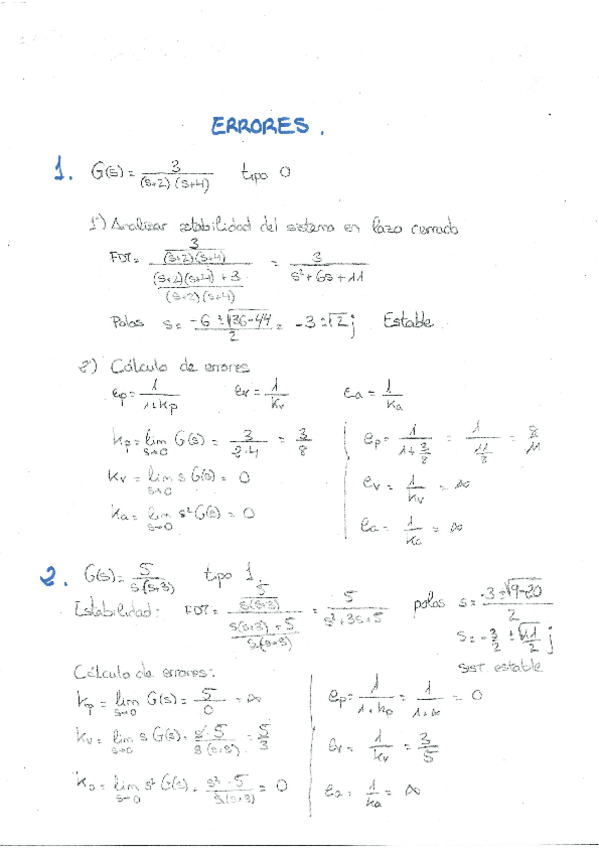 ERRORES.
1. G(s) = 3/((s+2)(s+4)) tipo 0
1º) Analizar estabilidad del sistema en lazo cerrado
FDT = (3/((s+2)(s+4)))/(((s+2)(s+4)+3)/((s+2)(s+4))) = 3/(s²+6s+11)
Polos s = (-6 ± √(36-44))/2 = -3 ± √2 j Estable
2º) Cálculo de errores
ep = 1/(1+kp) ev = 1/kv ea = 1/ka
kp = lim s→0 G(s) = 3/(2·4) = 3/8
ep = 1/(1+3/8) = 1/(11/8) = 8/11
kv = lim s→0 s G(s) = 0
ev = 1/kv = ∞
ka = lim s→0 s² G(s) = 0
ea = 1/ka = ∞
2. G(s) = 5/(s(s+3)) tipo 1.
Estabilidad: FDT = (5/(s(s+3)))/((s(s+3)+5)/(s(s+3))) = 5/(s²+3s+5) polos s = (-3 ± √(9-20))/2
s = -3/2 ± √11/2 j
SIST. estable
Cálculo de errores:
kp = lim s→0 G(s) = 5/0 = ∞
ep = 1/(1+kp) = 1/(1+∞) = 0
kv = lim s→0 s G(s) = s·5/(s(s+3)) = 5/3
ev = 1/kv = 3/5
ka = lim s→0 s² G(s) = s²·5/(s(s+3)) = 0
ea = 1/ka = ∞